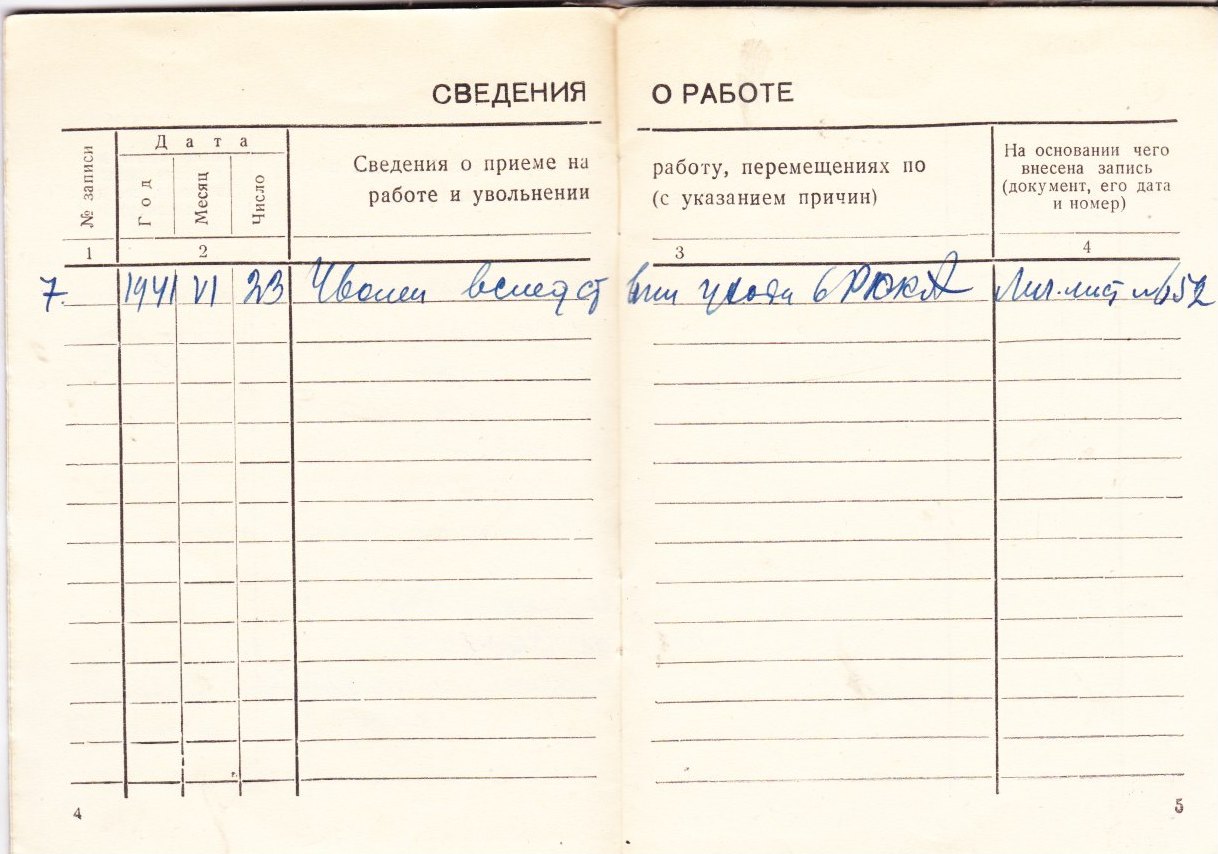 СВЕДЕНИЯ О РАБОТЕ
№ записи
Дата
Год
Месяц
Число
Сведения о приеме на работу, перемещениях по
работе и увольнении (с указанием причин)
На основании чего
внесена запись
(документ, его дата
и номер)
1 2 3 4
7. 1941 VI 23 Уволен вследствии ухода в РККА Лич. лист №652
4
5